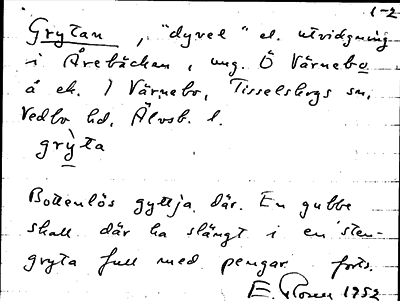 1-2
Grytan, "dyvel" el. utvidgning
i Årebäcken, ung. Ö Värnebo
å ek. 1 Värnebo, Tisselskogs sn,
Vedbo hd, Älvsb. l.
grỳta
Bottenlös gyttja där. En gubbe
skall där ha slängt i en sten-
gryta full med pengar. forts.
E. 1952